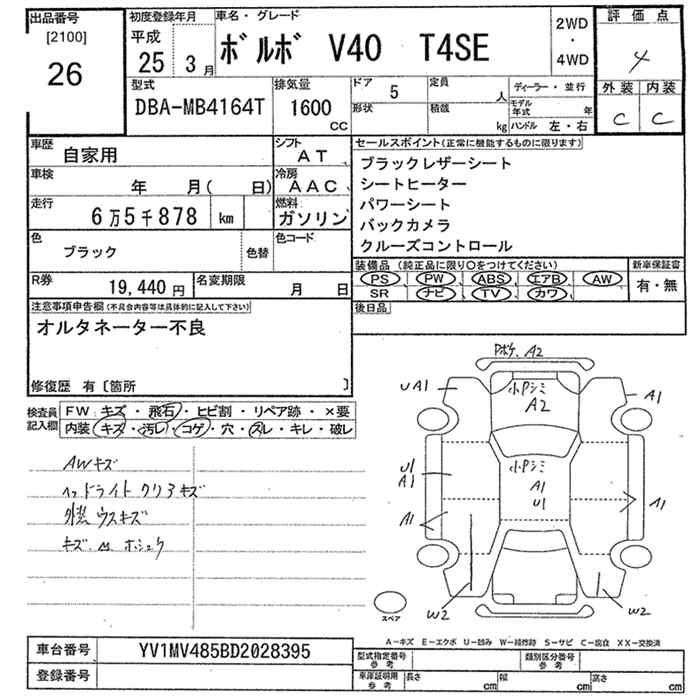 出品番号 初度登録年月 車名・グレード 2WD 評価点
[2100] 平成 ・
26 25 3月 ボルボ V40 T4SE 4WD 4
型式 排気量 ドア 5 定員 人 ディーラー・並行 外装 内装
DBA-MB4164T 1600 CC 形状 積載 kg モデル年式 年 C C
ハンドル 左・右
車歴 自家用 シフト AT
車検 年 月( 日) 冷房 AAC
走行 6万5千878 km 燃料 ガソリン
色 ブラック 色替 色コード
R券 19,440円 名変期限 月 日
セールスポイント(正常に機能するものに限ります)
ブラックレザーシート
シートヒーター
パワーシート
バックカメラ
クルーズコントロール
装備品 (純正品に限り○をつけてください) 新車保証書
PS PW ABS エアB AW 有・無
SR ナビ TV カワ
後日品
注意事項申告欄(不具合内容等は具体的に記入して下さい)
オルタネーター不良
修復歴 有〔箇所 〕
検査員 FW:キズ・飛石・ヒビ割・リペア跡・×要
記入欄 内装 キズ・汚レ・コゲ・穴・スレ・キレ・破レ
AWキズ
ヘッドライトクリアキズ
外装ウスキズ
Pポケ、A2
UA1
小Pシミ
A2
A1
U1
A1
小Pシミ
A1
U1
A1
A1
W2
W2
スペア
A-キズ E-エクボ U-凹み W-補修跡 S-サビ C-腐食 XX-交換済
車台番号 YV1MV485BD2028395
登録番号
型式指定番号 参考 類別区分番号 参考
車庫証明用 参考 長さ cm 幅 cm 高さ cm